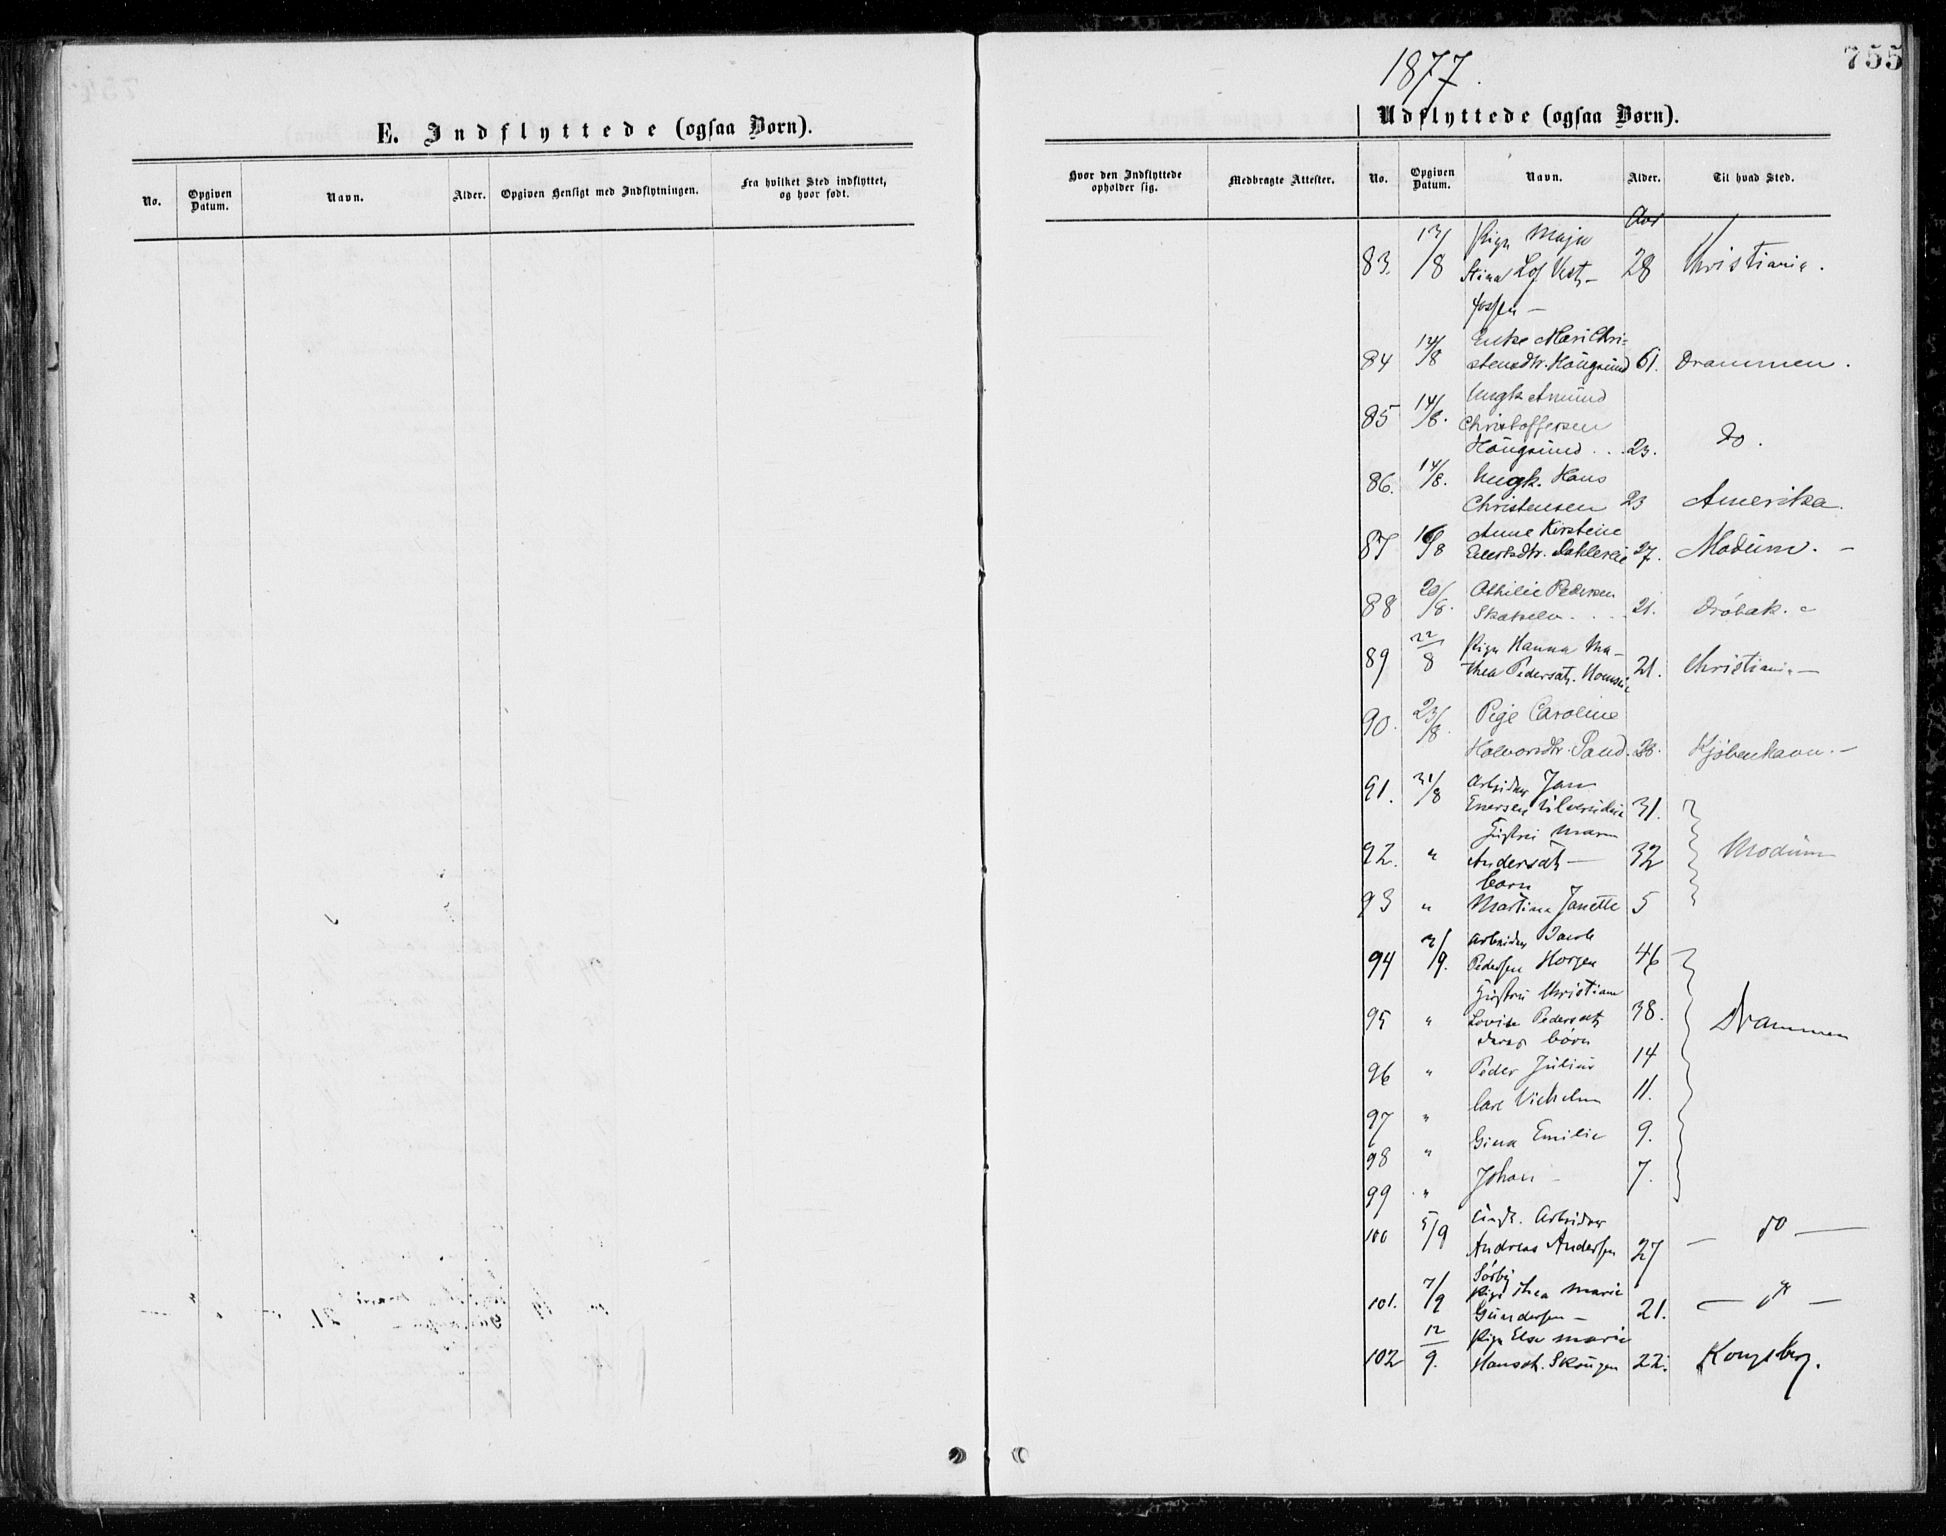 755
1877.
E. Indflyttede (ogsaa Børn).
Udflyttede (ogsaa Børn).
No. Opgiven Datum. Navn. Alder. Opgiven Hensigt med Indflytningen. Fra hvilket Sted indflyttet, og hvor født.
Hvor den Indflyttede opholder sig. Medbragte Attester. No. Opgiven Datum. Navn. Alder. Til hvad Sted.
Aar
83. 13/8 Pige Maja
Stina Lof Vest- 28 Christiania.
fossen -
84 14/8 Enke Mari Chri-
stensdtr. Hougsund 61. Drammen.
85 14/8. Ungk Amund
Christoffersen
Hougsund . . . 23. Do.
86. 14/8. Ungk. Hans
Christensen 23 Amerika.
87 16/8 Anne Kirstine
Evertsdtr. 27. Modum. -
88 20/8. Othilie Pedersen
Skotselv. . . . 21. Dröbak.
89 22/8 Pige Hanna Ma-
thea Pedersdt. 21. Christiania -
90. 23/8. Pige Caroline
Halvorsdtr. Sand. 28. Kjøbenhavn. -
91. 31/8 Arbeider Jan
Enersen 31.
92. " Hustru Maren
Andersdt - 32 Modum
barn
93 " Martina Janette 5
94 3/9. Arbeider Jacob
Pedersen Horgen 46
95 " Hustru Christiane
Lovise Pedersdt 38. Drammen
deres børn
96 " Peder Julius 14
97 " Carl Vilhelm 11.
98 " Gina Emilie 9.
99 " Johan - 7.
100 5/9 Ungk. Arbeider
Andreas Andersen 27 - do -
Sørby
101. 7/9 Pige Thea Marie
Gundersen - 21. - do -
102 12/9. Pige Else Marie
Hansdt. Skougen 22. Kongsberg.